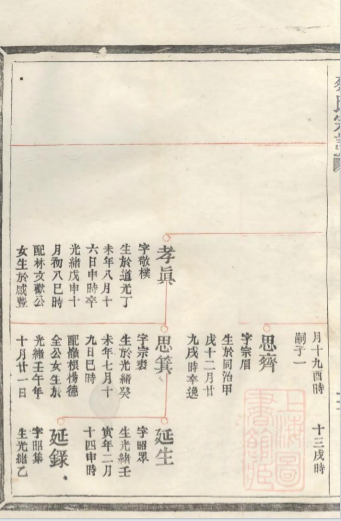 月十九酉時
嗣子一
十三戌時
思齊
字宗眉
生於同治甲
戌十二月廿
九戌時幸邊
孝真
字敬樸
生於道光丁
未年八月十
六日申時卒
光緒戊申十
月初八巳時
配林文獻公
女生於咸豐
思箕
字宗裘
生於光緒癸
未年七月十
九日巳時
配嶺根楊德
全公女生於
光緒壬午年
十月廿一日
延生
字昭眾
生光緒壬
寅年二月
十四申時
延錄
字昭集
生光緒乙
上海圖書館藏